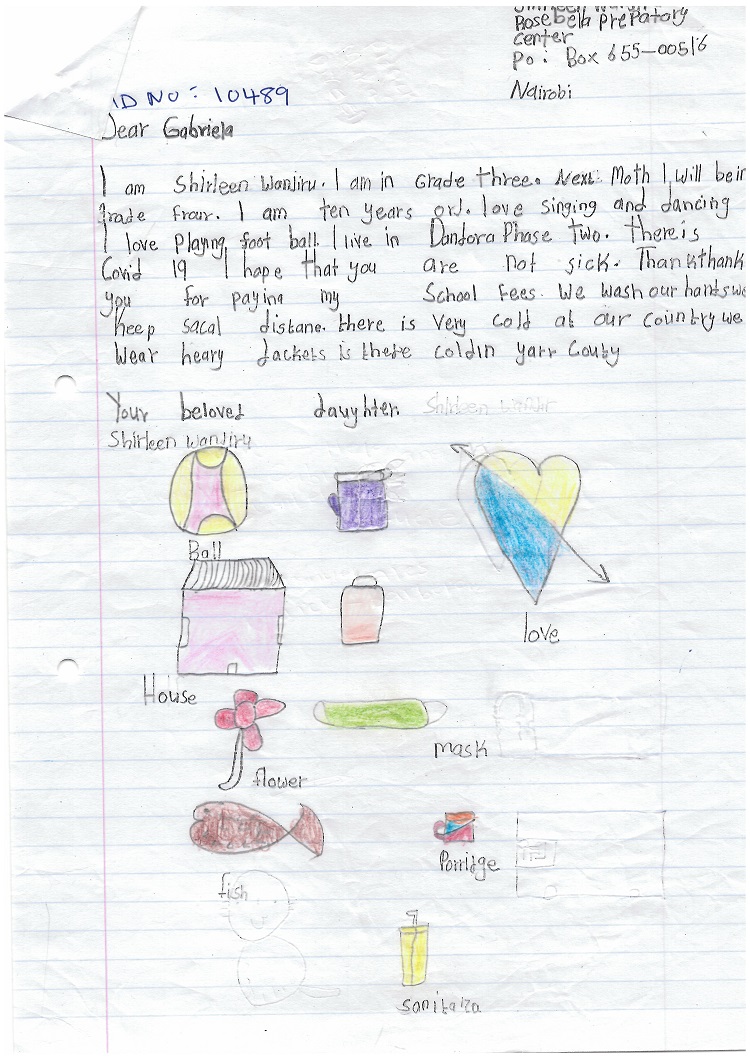 Shirleen
Rosebella Prepatory
Center
Po: Box 655-00516
Nairobi
ID NO: 10489
Dear Gabriela
I am Shirleen Wanjiru. I am in Grade three. Next Moth I will bein
Grade frour. I am ten years orl. love singing and dancing
I love Playing foot ball. I live in Dandora Phase Two. there is
Covid 19 I hope that you are not sick. Thankthank
you for paying my School fees. We wash our hands we
keep sacal distane. there is very cold at our country we
Wear heary Jackets is there coldin yarr Couby
Your beloved daughter. Shirleen wanjir
Shirleen wanjiru
Ball
love
House
mask
flower
Porridge
fish
sanitaza